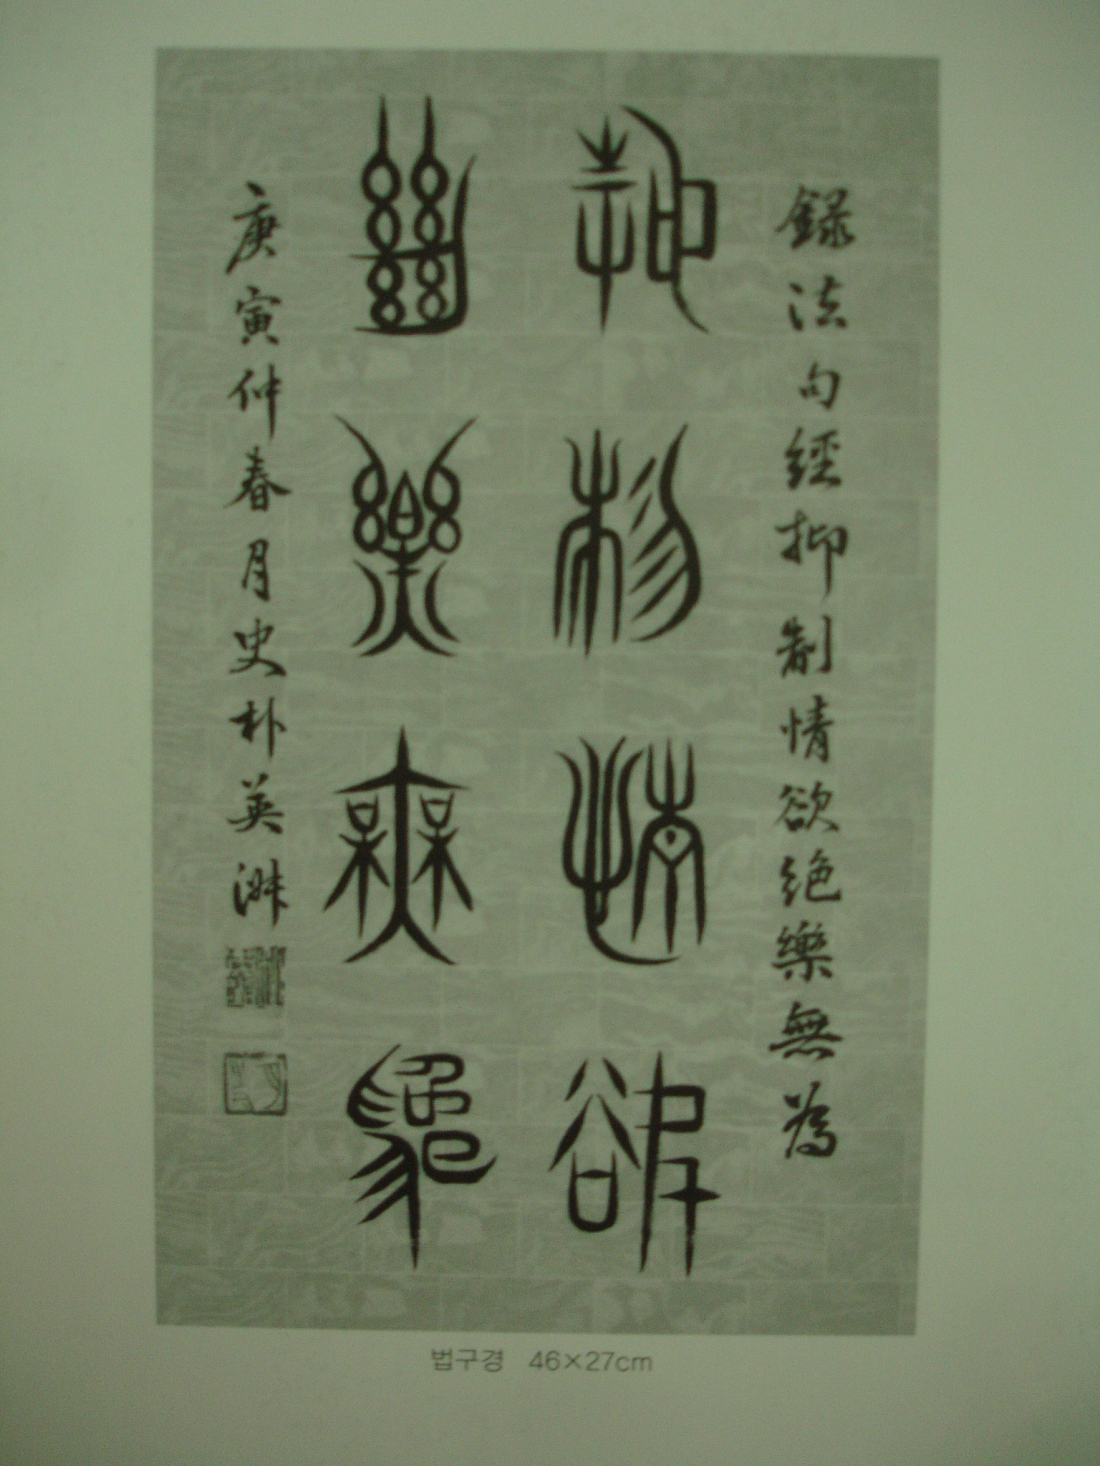 錄法句經抑制情欲絶樂無為
抑制情欲
絶樂無為
庚寅仲春月史朴英
법구경 46×27cm